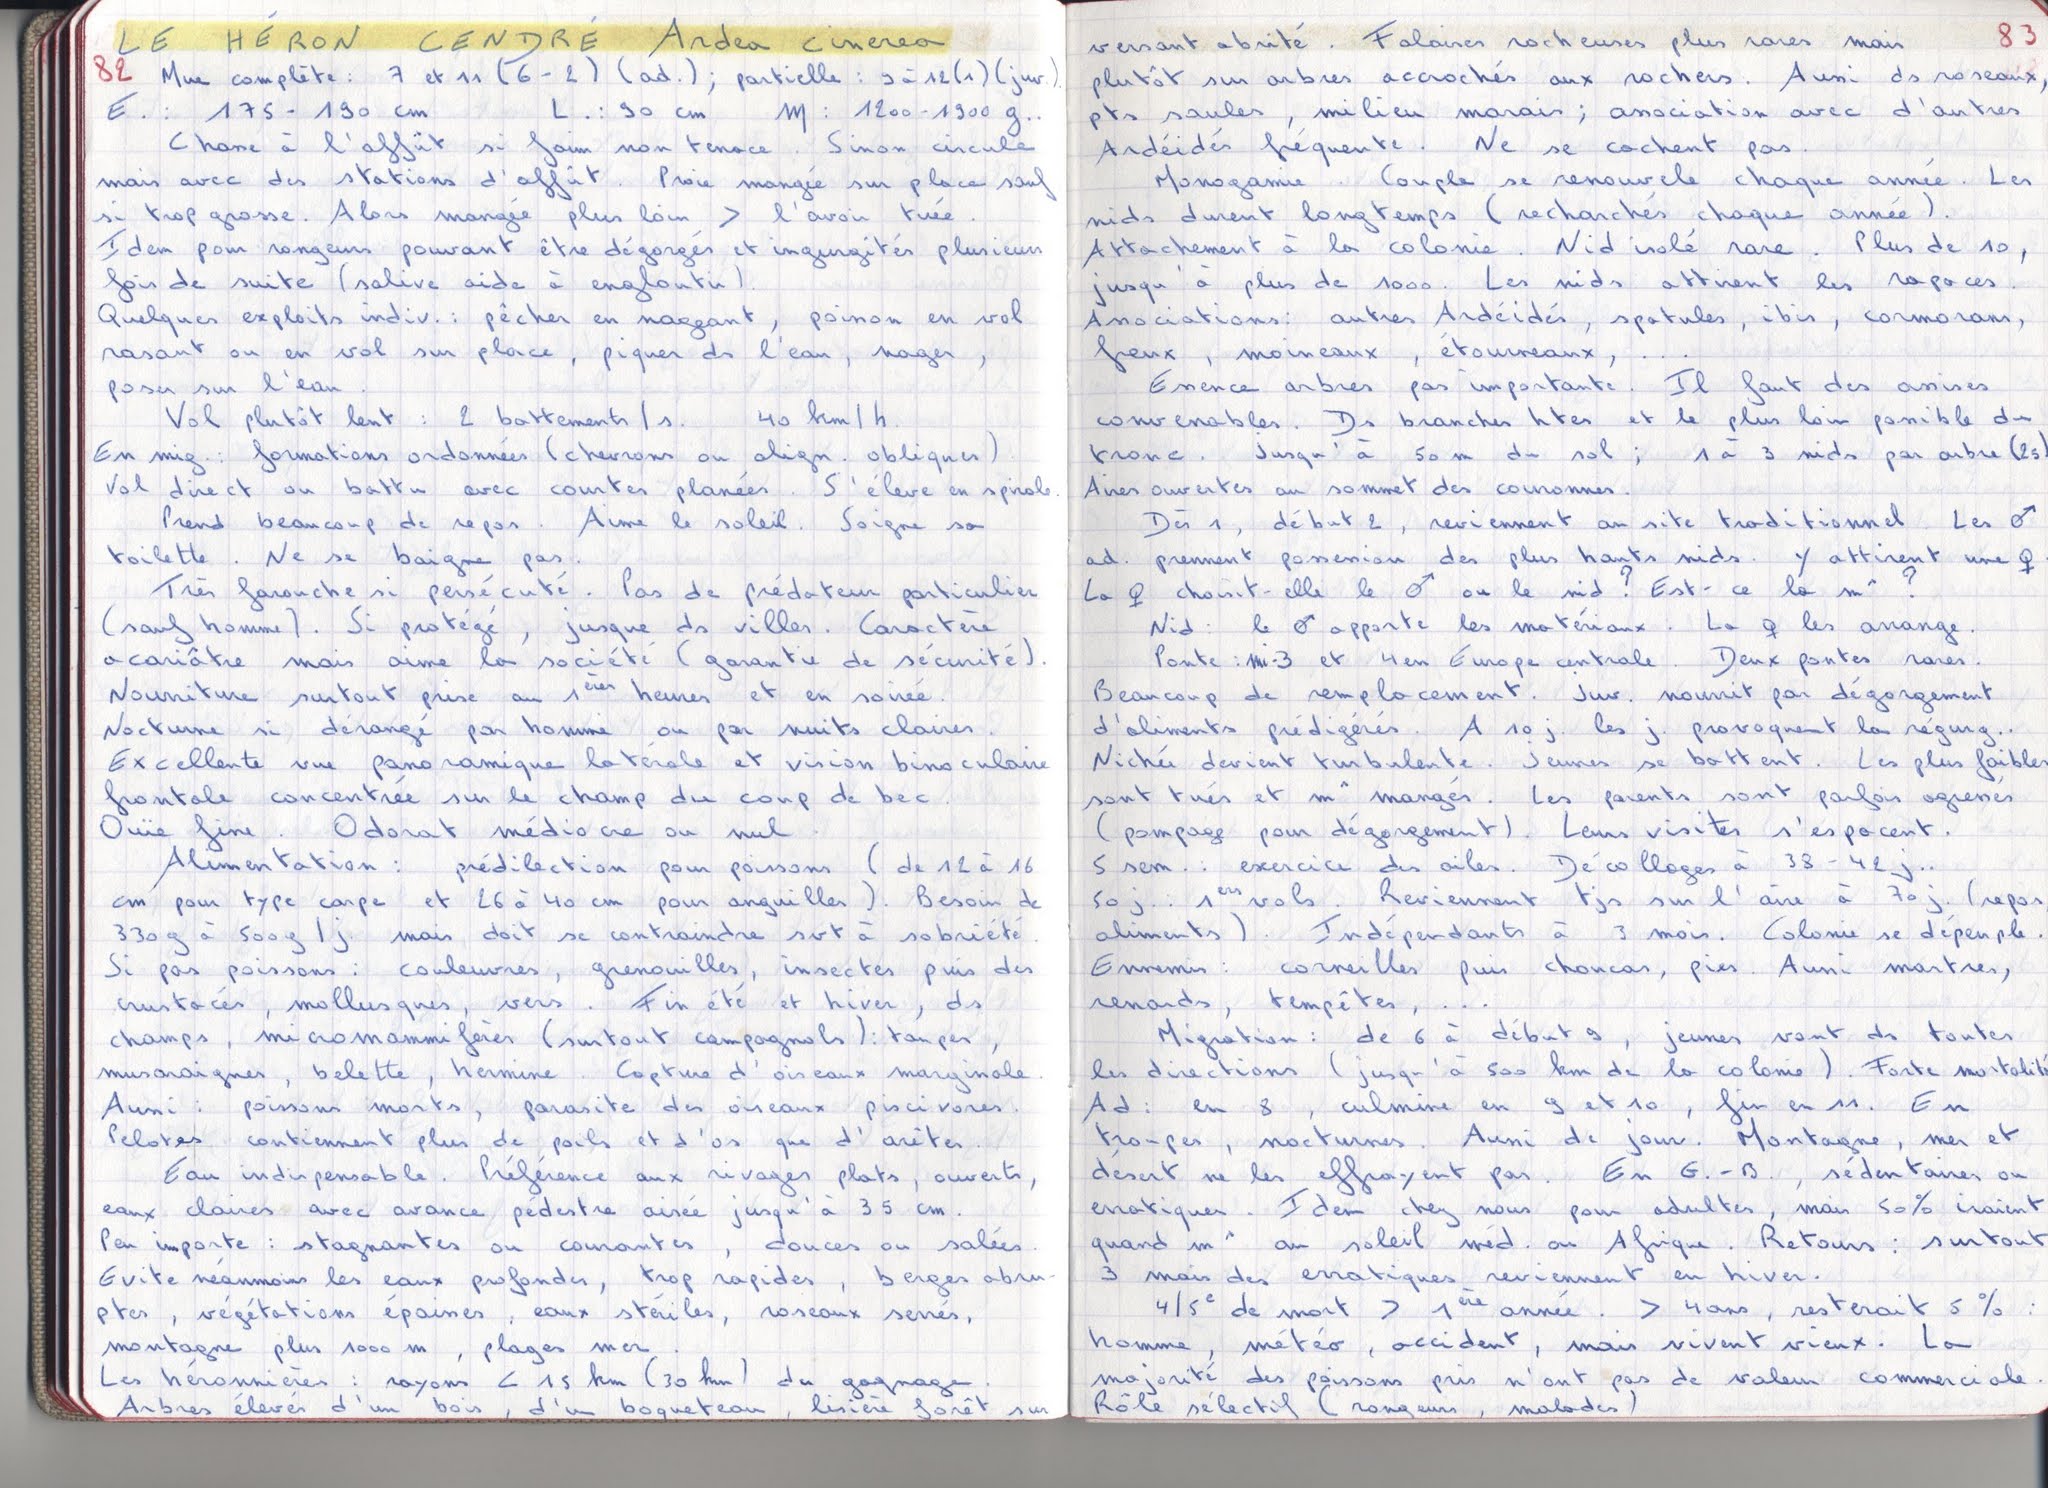 LE HÉRON CENDRÉ Ardea cinerea
82
Mue complète : 7 et 11 (6-2) (ad.) ; partielle : 9 à 12 (1) (juv.).
E. : 175-190 cm L. : 90 cm M : 1200-1900 g..
Chasse à l'affût si faim non tenace. Sinon circule
mais avec des stations d'affût. Proie mangée sur place sauf
si trop grosse. Alors mangée plus loin > l'avoir tuée.
Idem pour rongeurs pouvant être dégorgés et ingurgités plusieurs
fois de suite (salive aide à engloutir).
Quelques exploits indiv. : pêcher en nageant, poisson en vol
rasant ou en vol sur place, piquer ds l'eau, nager,
poser sur l'eau.
Vol plutôt lent : 2 battements/s. 40 km/h.
En mig. : formations ordonnées (chevrons ou align. obliques).
Vol direct ou battu avec courtes planées. S'élève en spirale.
Prend beaucoup de repos. Aime le soleil. Soigne sa
toilette. Ne se baigne pas.
Très farouche si persécuté. Pas de prédateur particulier
(sauf homme). Si protégé, jusque ds villes. Caractère
acariâtre mais aime la société (garantie de sécurité).
Nourriture surtout prise au 1ères heures et en soirée.
Nocturne si dérangé par homme ou par nuits claires.
Excellente vue panoramique latérale et vision binoculaire
frontale concentrée sur le champ du coup de bec.
Ouïe fine. Odorat médiocre ou nul.
Alimentation : prédilection pour poissons (de 12 à 16
cm pour type carpe et 26 à 40 cm pour anguilles). Besoin de
330g à 500g/j. mais doit se contraindre svt à sobriété.
Si pas poissons : couleuvres, grenouilles, insectes puis des
crustacés, mollusques, vers. Fin été et hiver, ds
champs, micromammifères (surtout campagnols) : taupes,
musaraignes, belette, hermine. Capture d'oiseaux marginale.
Aussi : poissons morts, parasite des oiseaux piscivores.
Pelotes contiennent plus de poils et d'os que d'arêtes.
Eau indispensable. Préférence aux rivages plats, ouverts,
eaux claires avec avance pédestre aisée jusqu'à 35 cm.
Peu importe : stagnantes ou courantes, douces ou salées.
Evite néanmoins les eaux profondes, trop rapides, berges abru-
ptes, végétations épaisses, eaux stériles, roseaux serrés,
montagne plus 1000 m, plages mer.
Les héronnières : rayons < 15 km (30 km) du gagnage.
Arbres élevés d'un bois, d'un boqueteau, lisière forêt sur
83
versant abrité. Falaises rocheuses plus rares mais
plutôt sur arbres accrochés aux rochers. Aussi ds roseaux,
pts saules, milieu marais ; association avec d'autres
Ardéidés fréquente. Ne se cachent pas.
Monogamie. Couple se renouvele chaque année. Les
nids durent longtemps (recharchés chaque année).
Attachement à la colonie. Nid isolé rare. Plus de 10,
jusqu'à plus de 1000. Les nids attirent les rapaces.
Associations : autres Ardéidés, spatules, ibis, cormorans,
freux, moineaux, étourneaux, ...
Essence arbres pas importante. Il faut des assises
convenables. Ds branches htes et le plus loin possible du
tronc. Jusqu'à 50 m du sol ; 1 à 3 nids par arbre (25)
Aires ouvertes au sommet des couronnes.
Dès 1, début 2, reviennent au site traditionnel. Les ♂
ad. prennent possession des plus hauts nids. Y attirent une ♀.
La ♀ choisit-elle le ♂ ou le nid ? Est-ce la m^ ?
Nid : le ♂ apporte les matériaux. La ♀ les arrange.
Ponte : mi-3 et 4 en Europe centrale. Deux pontes rares.
Beaucoup de remplacement. Juv. nourrit par dégorgement
d'aliments prédigérés. A 10 j. les j. provoquent la régurg..
Nichée devient turbulente. Jeunes se battent. Les plus faibles
sont tués et m^ mangés. Les parents sont parfois agressés
(pompage pour dégorgement). Leurs visites s'espacent.
5 sem. : exercice des ailes. Décollages à 38-42 j..
50 j. : 1ers vols. Reviennent tjs sur l'aire à 70 j. (repos,
aliments). Indépendants à 3 mois. Colonie se dépeuple.
Ennemis : corneilles puis choucas, pies. Aussi martres,
renards, tempêtes, ...
Migration : de 6 à début 9, jeunes vont ds toutes
les directions (jusqu'à 500 km de la colonie). Forte mortalité
Ad : en 8, culmine en 9 et 10, fin en 11. En
troupes, nocturnes. Aussi de jour. Montagne, mer et
désert ne les effrayent pas. En G.-B., sédentaires ou
erratiques. Idem chez nous pour adultes, mais 50% iraient
quand m^ au soleil méd. ou Afrique. Retours : surtout
3 mais des erratiques reviennent en hiver.
4/5e de mort > 1ère année. > 4 ans, resterait 5% :
homme, météo, accident, mais vivent vieux. La
majorité des poissons pris n'ont pas de valeur commerciale.
Rôle sélectif (rongeurs, malades)